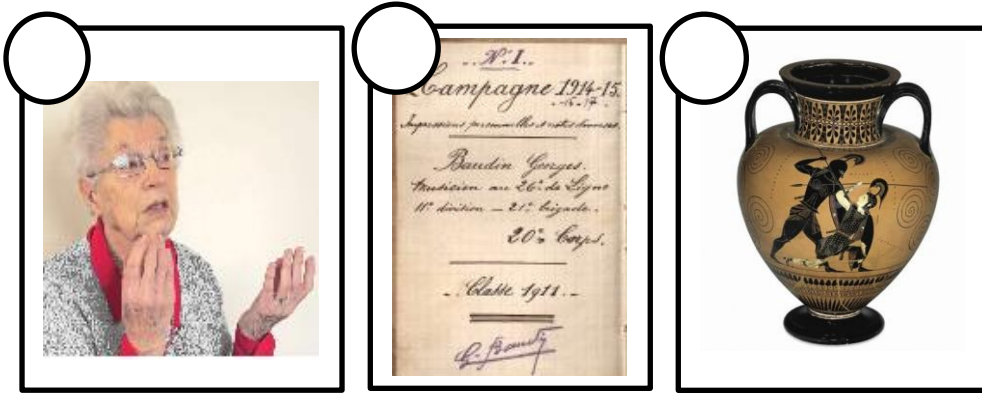 N°. I.
Campagne 1914-15.
-16-17-
Impressions personnelles & notes diverses.
Baudin Georges.
Musicien au 26e de Ligne
11e division – 21e brigade.
20e Corps.
Classe 1911.
G. Baudin